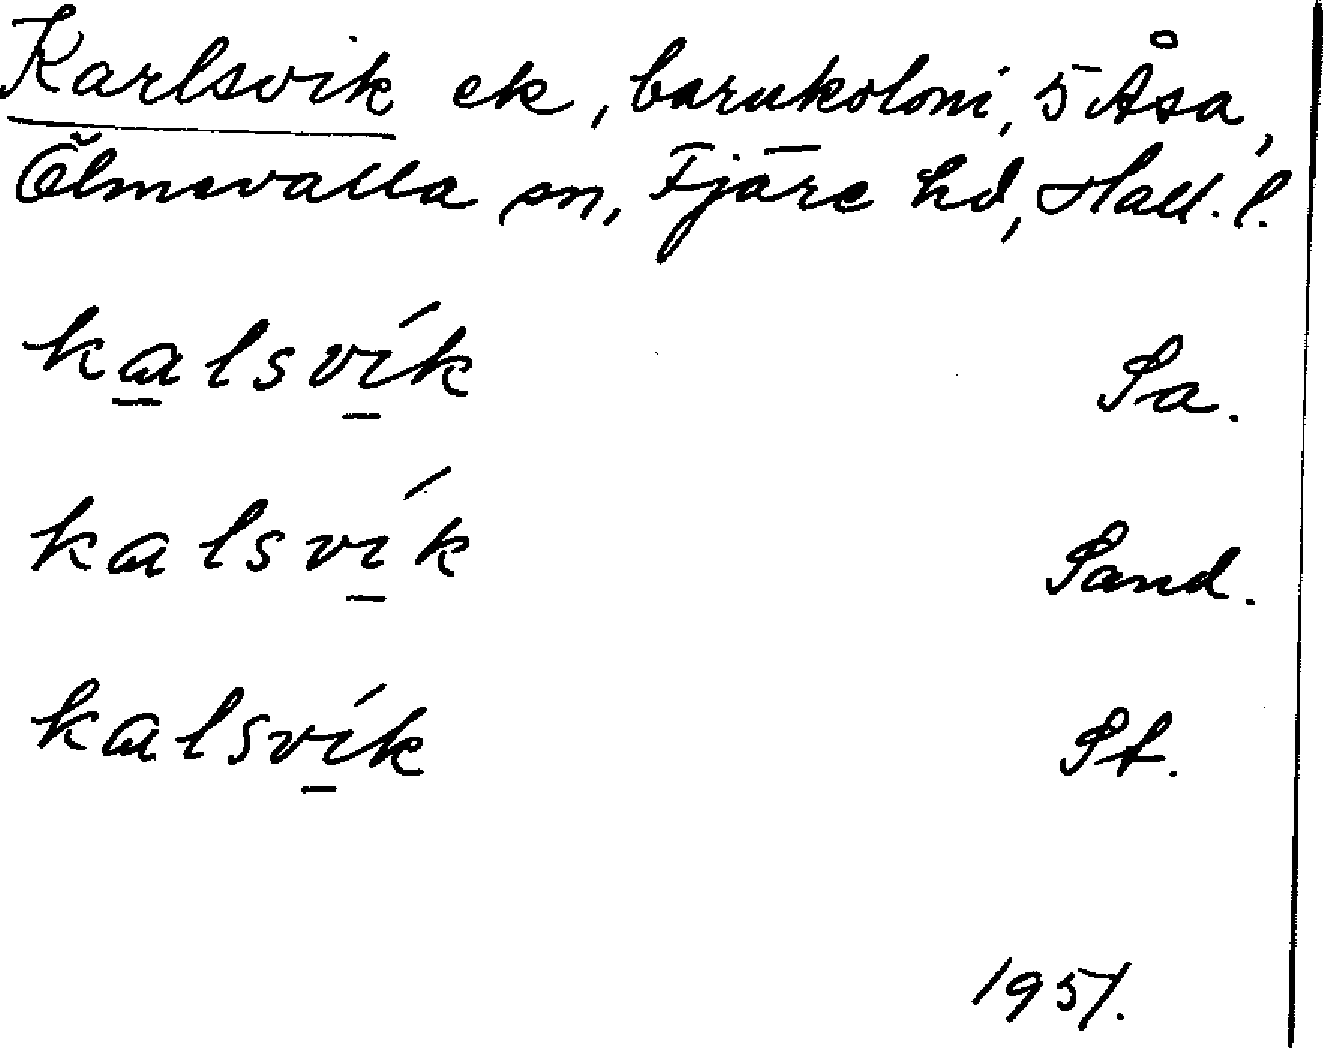 Karlsvik ek, barnkoloni, 5 Åsa,
Ölmevalla sn, Fjäre hd, Hall. l.
kalsvík Sa.
kalsvík Sand.
kalsvík St.
1951.